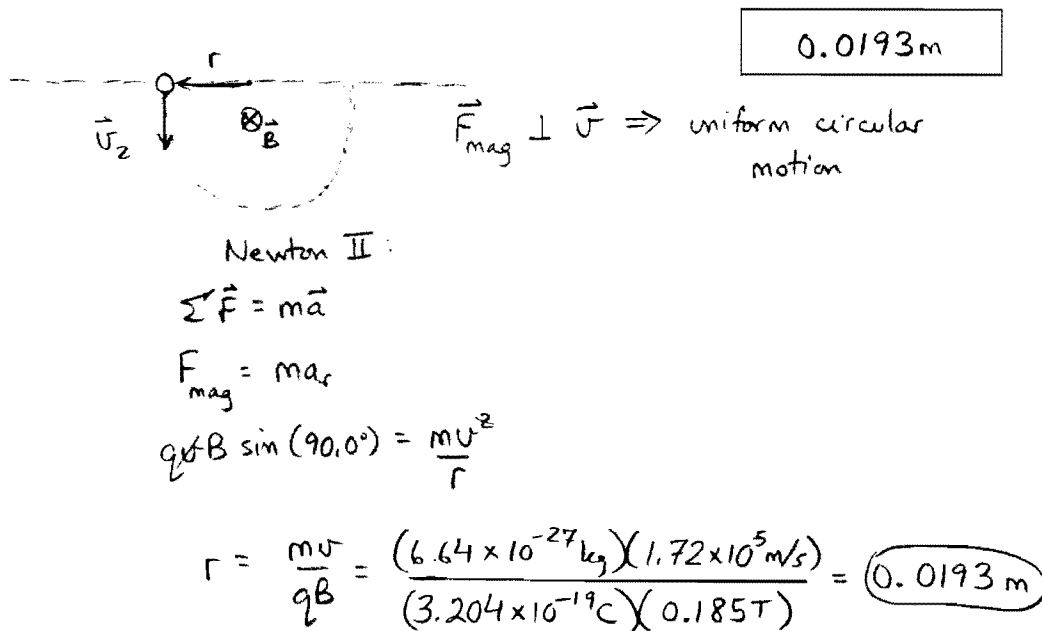 0.0193m
r
v⃗₂
⊗ B⃗
F⃗mag ⊥ v⃗ ⇒ uniform circular
motion
Newton II:
ΣF⃗ = ma⃗
Fmag = maᵣ
qvB sin (90.0°) = mv²/r
r = mv/qB = (6.64 × 10⁻²⁷ kg)(1.72×10⁵ m/s)/(3.204×10⁻¹⁹C)(0.185T) = 0.0193 m